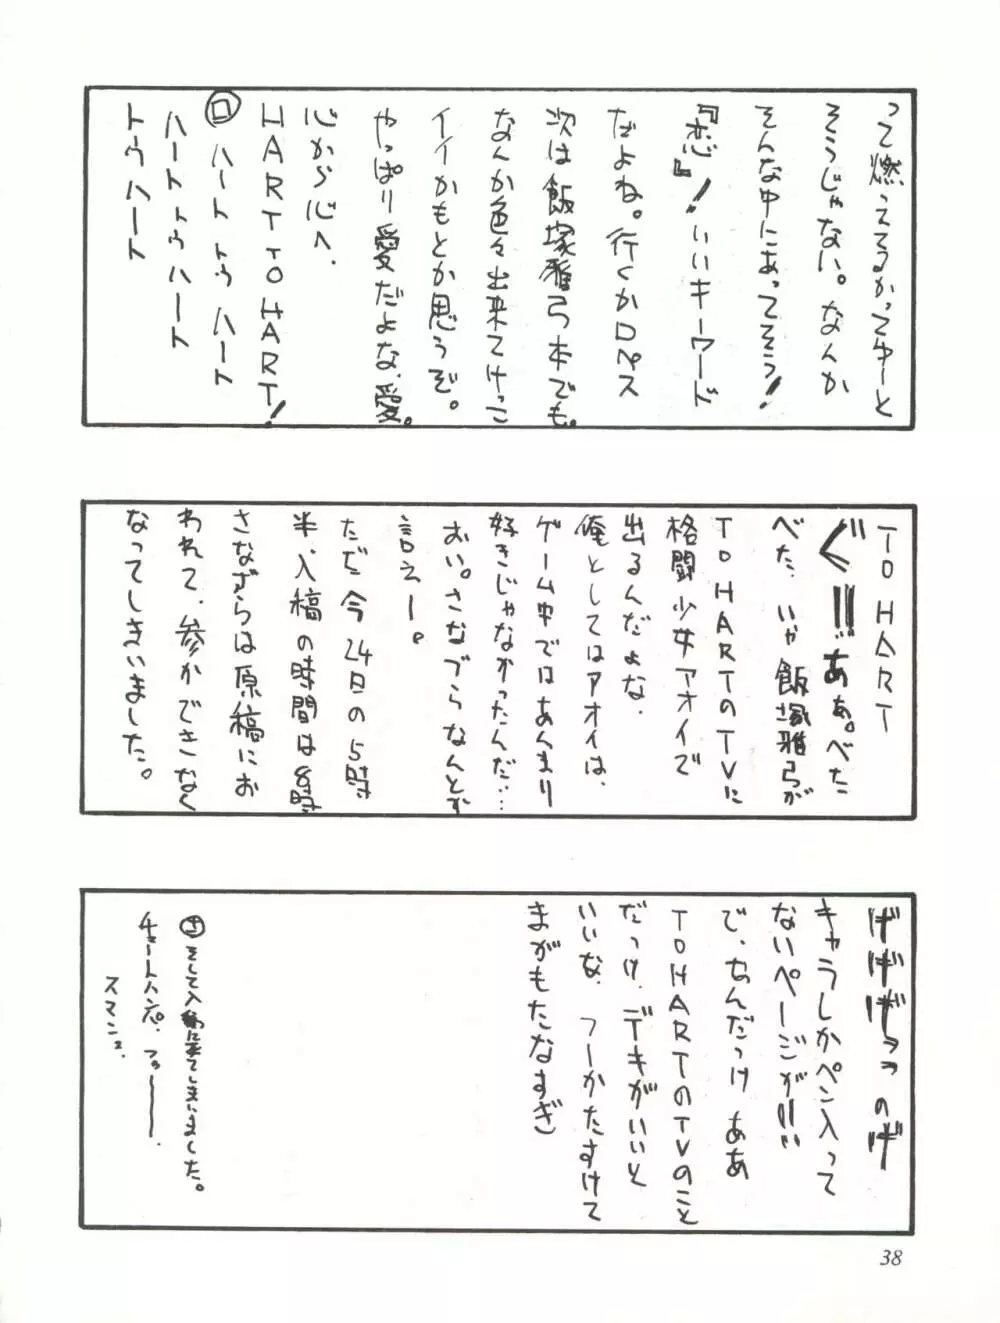 って燃えてるかってゆーと
そうじゃない。なんか
そんな中にあってそう!
『恋』!いいキーワード
だよね。行くかロペス
次は飯塚雅弓本でも。
なんか色々出来てけっこ
イイかもとか思うぞ。
やっぱり愛だよな、愛。
心から心へ、
HART TO HART!
ロ ハート トゥ ハート
ハート トゥ ハート
トゥ ハート
TO HART
ぐ!!!゛あぁ。べた
べた、いや飯塚雅弓が
TO HARTのTVに
格闘少女アオイで
出るんだよな、
俺としてはアオイは、
ゲーム中ではあんまり
好きじゃなかったんだ……
おい。さなづらなんとか
言えー。
ただ今24日の5時
半、入稿の時間は8時
さなづらは原稿にお
われて、参かできなく
なってしまいました。
げげげっっのげ
キャラしかペン入って
ないページが!!!
で、なんだっけ ああ
TO HARTのTVのこと
だっけ、デキがいいと
いいな、フーかたすけて
まがもたなすぎ
そして入稿に来てしまいました。
チョートハンパ、フゥーー、
スマンヌ、
38